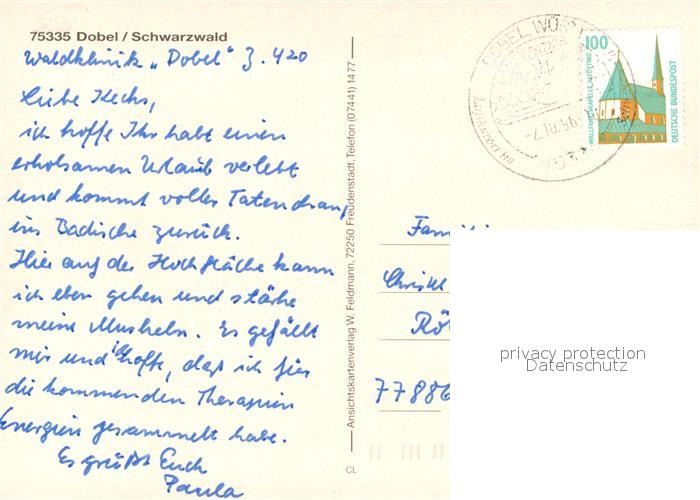 75335 Dobel / Schwarzwald
Waldklinik „Dobel" Z. 420
Liebe Kechs,
ich hoffe Ihr habt einen
erholsamen Urlaub verlebt
und kommt voller Tatendrang
ins Badische zurück.
Hier auf der Hochfläche kann
ich eben gehen und stärke
meine Muskeln. Es gefällt
mir und ich hoffe, daß ich für
die kommenden Therapien
Energien gesammelt habe.
Es grüßt Euch
Paula
Ansichtskartenverlag W. Feldmann, 72250 Freudenstadt, Telefon (07441) 1477
CL
DOBEL, WÜRTT
-7.10.96
100
WALLFAHRTSKAPELLE ALTÖTTING
DEUTSCHE BUNDESPOST
Famili
Christ
Rö
77886
privacy protection
Datenschutz